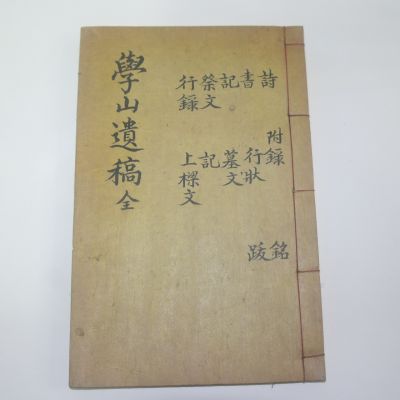 學山遺稿 全
詩
書
記
祭文
行錄
附錄
行狀
墓文
記
上樑文
銘
跋